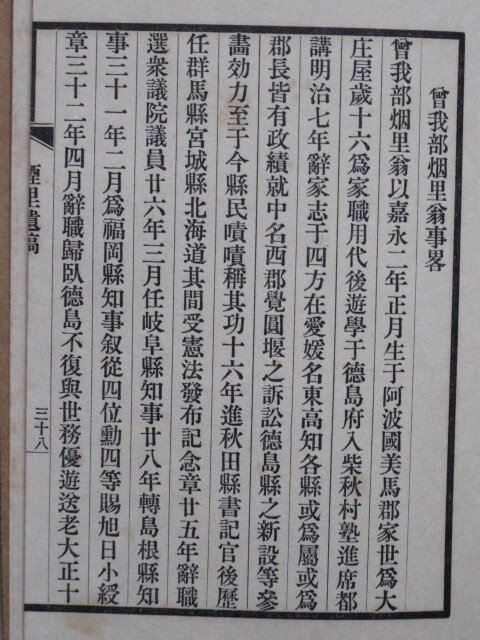 曾我部烟里翁事畧
曾我部烟里翁以嘉永二年正月生于阿波國美馬郡家世爲大
庄屋歲十六爲家職用代後遊學于德島府入柴秋村塾進席都
講明治七年辭家志于四方在愛媛名東高知各縣或爲屬或爲
郡長皆有政績就中名西郡覺圓堰之訴訟德島縣之新設等參
畵効力至于今縣民嘖嘖稱其功十六年進秋田縣書記官後歷
任群馬縣宮城縣北海道其間受憲法發布記念章廿五年辭職
選衆議院議員廿六年三月任岐阜縣知事廿八年轉島根縣知
事三十一年二月爲福岡縣知事叙從四位勳四等賜旭日小綬
章三十二年四月辭職歸臥德島不復與世務優遊送老大正十
烟里遺稿
三十八